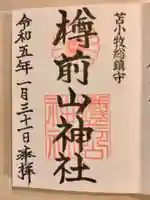 苫小牧総鎮守
樽前山神社
令和五年一月三十一日参拝